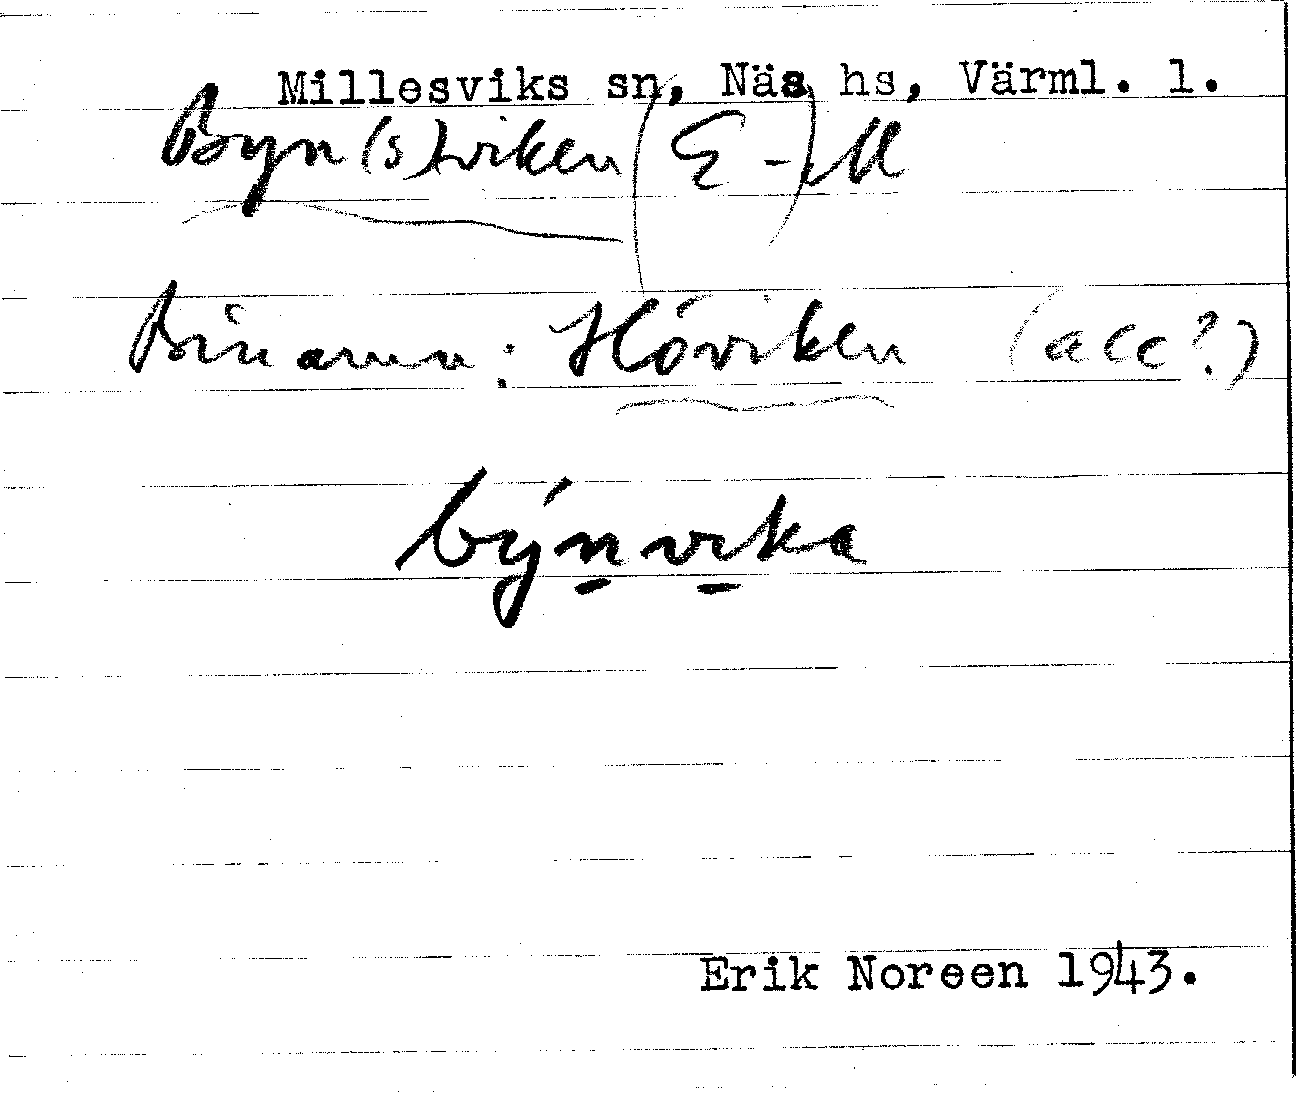 Millesviks sn, Näs hs, Värml. l.
Byn(s)viken (E-)M
Binamn: Höviken (acc?)
býnvika
Erik Noreen 1943.